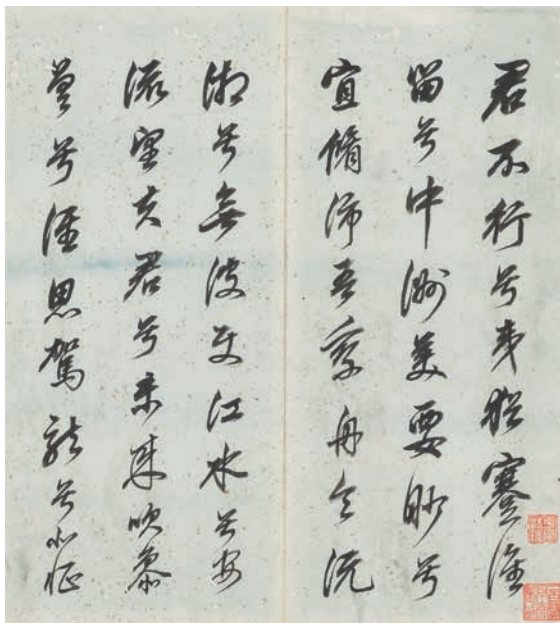 君不行兮夷猶蹇誰
留兮中洲美要眇兮
宜脩沛吾乘舟令沅
湘兮無波使江水兮安
流望夫君兮未來吹參
差兮誰思駕龍兮北征